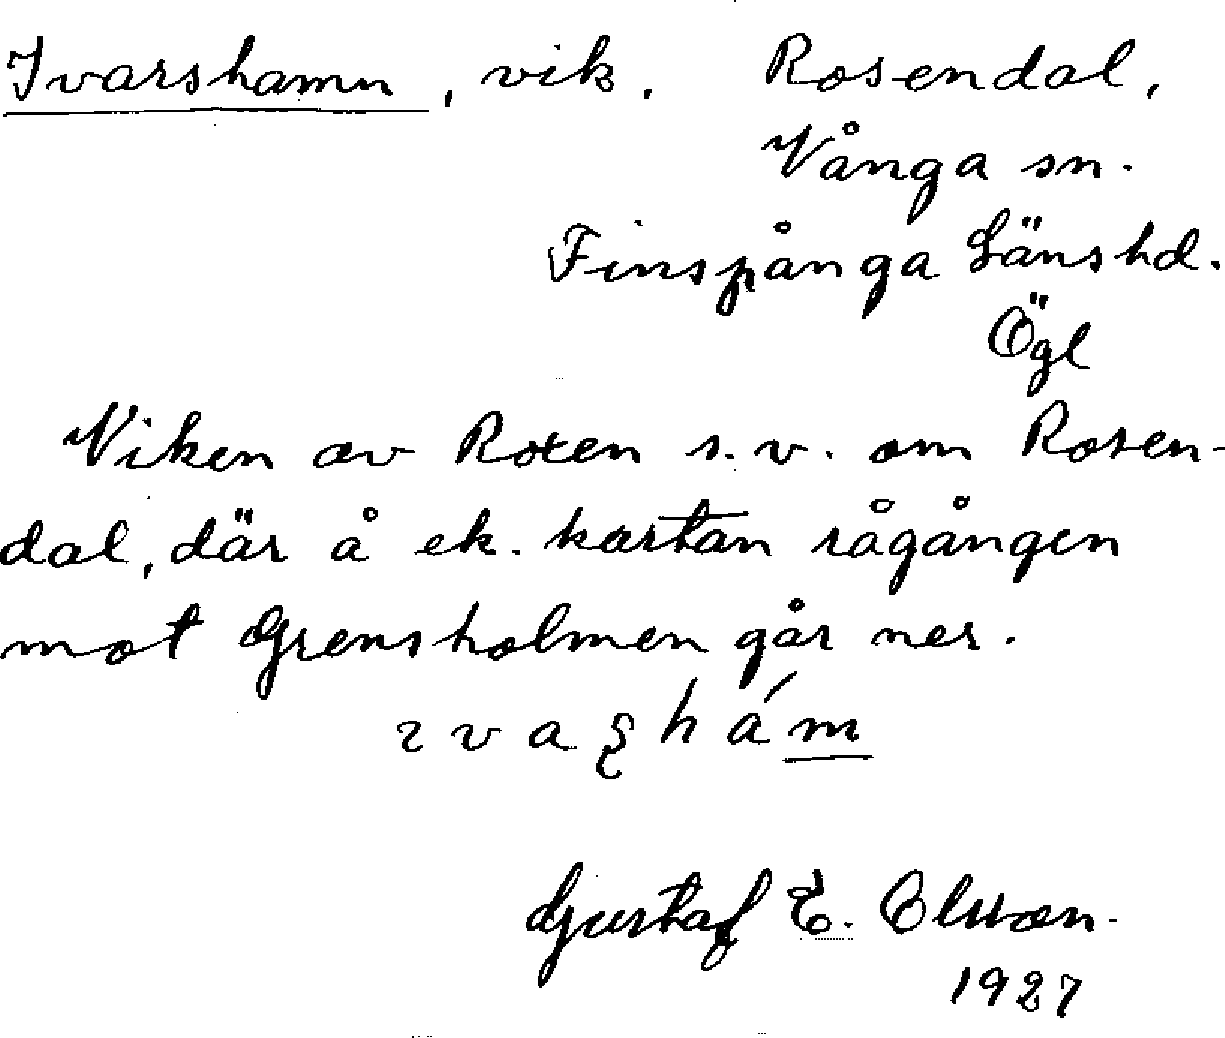 Ivarshamn, vik. Rosendal,
Vånga sn.
Finspånga Länshd.
Ögl
Viken av Roxen s.v. om Rosen-
dal, där å ek. kartan rågången
mot Grensholmen går ner.
Gustaf E. Olsson.
1927